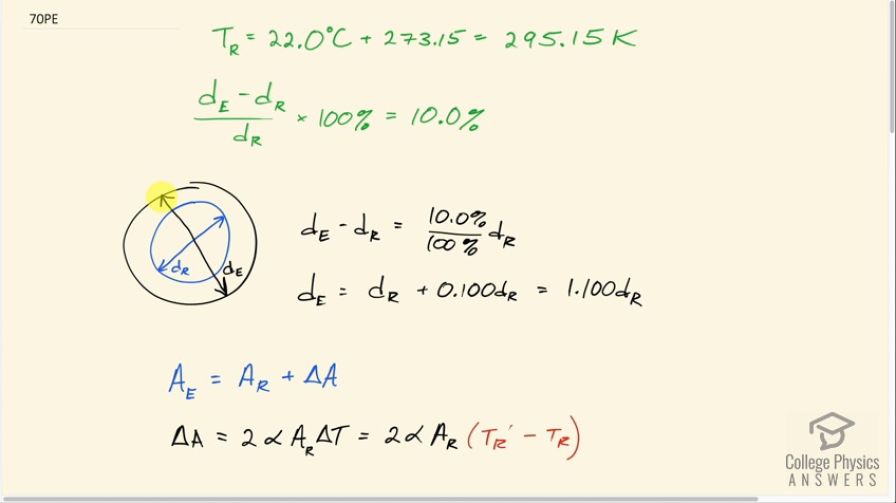 70PE
T_R = 22.0°C + 273.15 = 295.15 K
(d_E - d_R)/d_R × 100% = 10.0%
d_R d_E
d_E - d_R = 10.0%/100% d_R
d_E = d_R + 0.100d_R = 1.100d_R
A_E = A_R + ΔA
ΔA = 2 α A_R ΔT = 2 α A_R (T_R' - T_R)
College Physics
ANSWERS